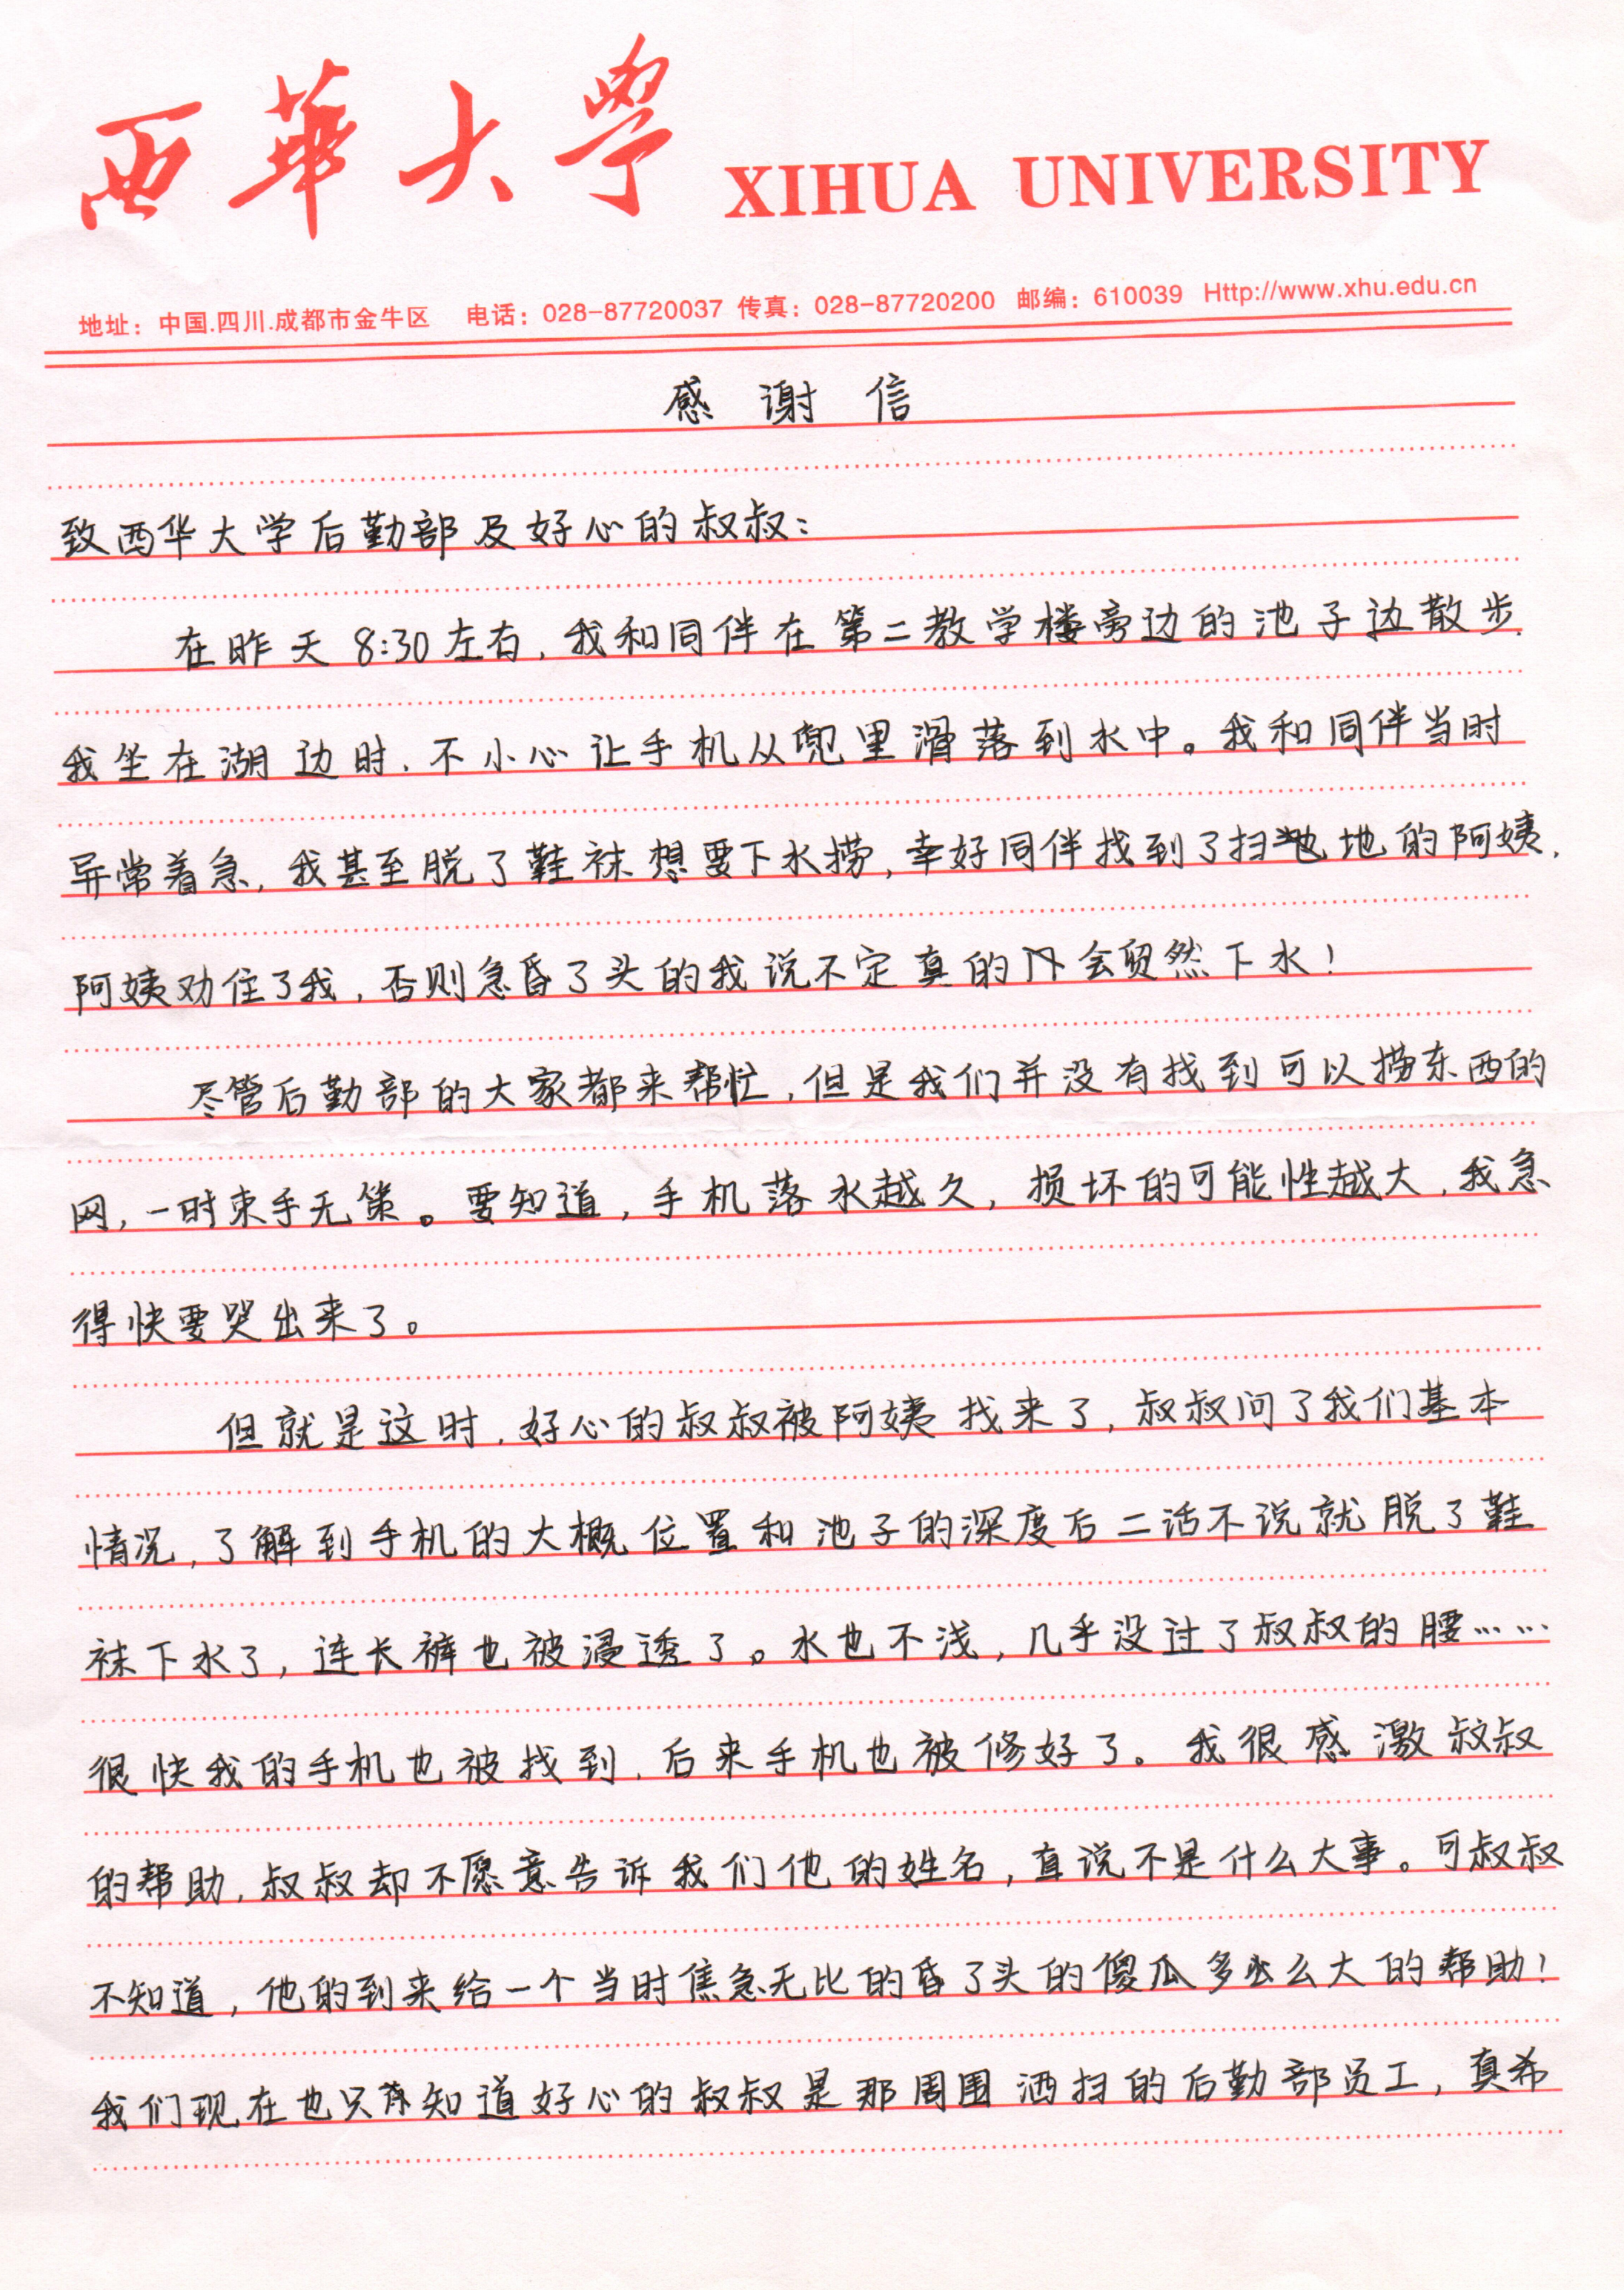 西華大學 XIHUA UNIVERSITY
地址：中国.四川.成都市金牛区 电话：028-87720037 传真：028-87720200 邮编：610039 Http://www.xhu.edu.cn
感谢信
致西华大学后勤部及好心的叔叔：
在昨天8:30左右，我和同伴在第二教学楼旁边的池子边散步.
我坐在湖边时，不小心让手机从兜里滑落到水中。我和同伴当时
异常着急，我甚至脱了鞋袜想要下水捞，幸好同伴找到了扫地的阿姨.
阿姨劝住了我，否则急昏了头的我说不定真的会贸然下水！
尽管后勤部的大家都来帮忙，但是我们并没有找到可以捞东西的
网，一时束手无策。要知道，手机落水越久，损坏的可能性越大，我急
得快要哭出来了。
但就是这时，好心的叔叔被阿姨找来了，叔叔问了我们基本
情况，了解到手机的大概位置和池子的深度后二话不说就脱了鞋
袜下水了，连长裤也被浸透了。水也不浅，几乎没过了叔叔的腰……
很快我的手机也被找到，后来手机也被修好了。我很感激叔叔
的帮助，叔叔却不愿意告诉我们他的姓名，直说不是什么大事。可叔叔
不知道，他的到来给一个当时焦急无比的昏了头的傻瓜多么大的帮助！
我们现在也只知道好心的叔叔是那周围洒扫的后勤部员工，真希